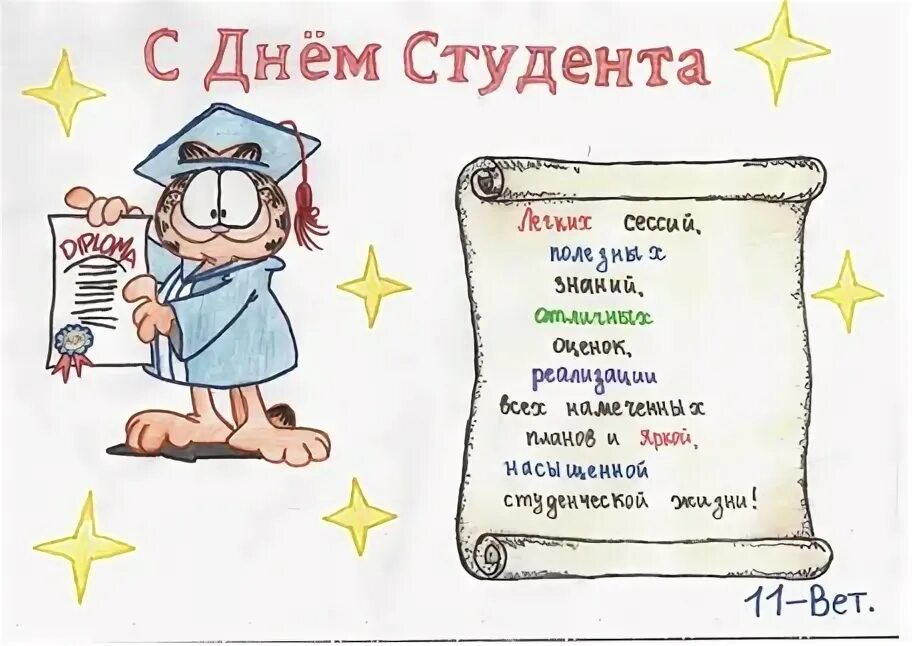 С Днём Студента
DIPLOMA
Легких сессий,
полезных
знаний,
отличных
оценок,
реализации
всех намеченных
планов и яркой,
насыщенной
студенческой жизни!
11-Вет.